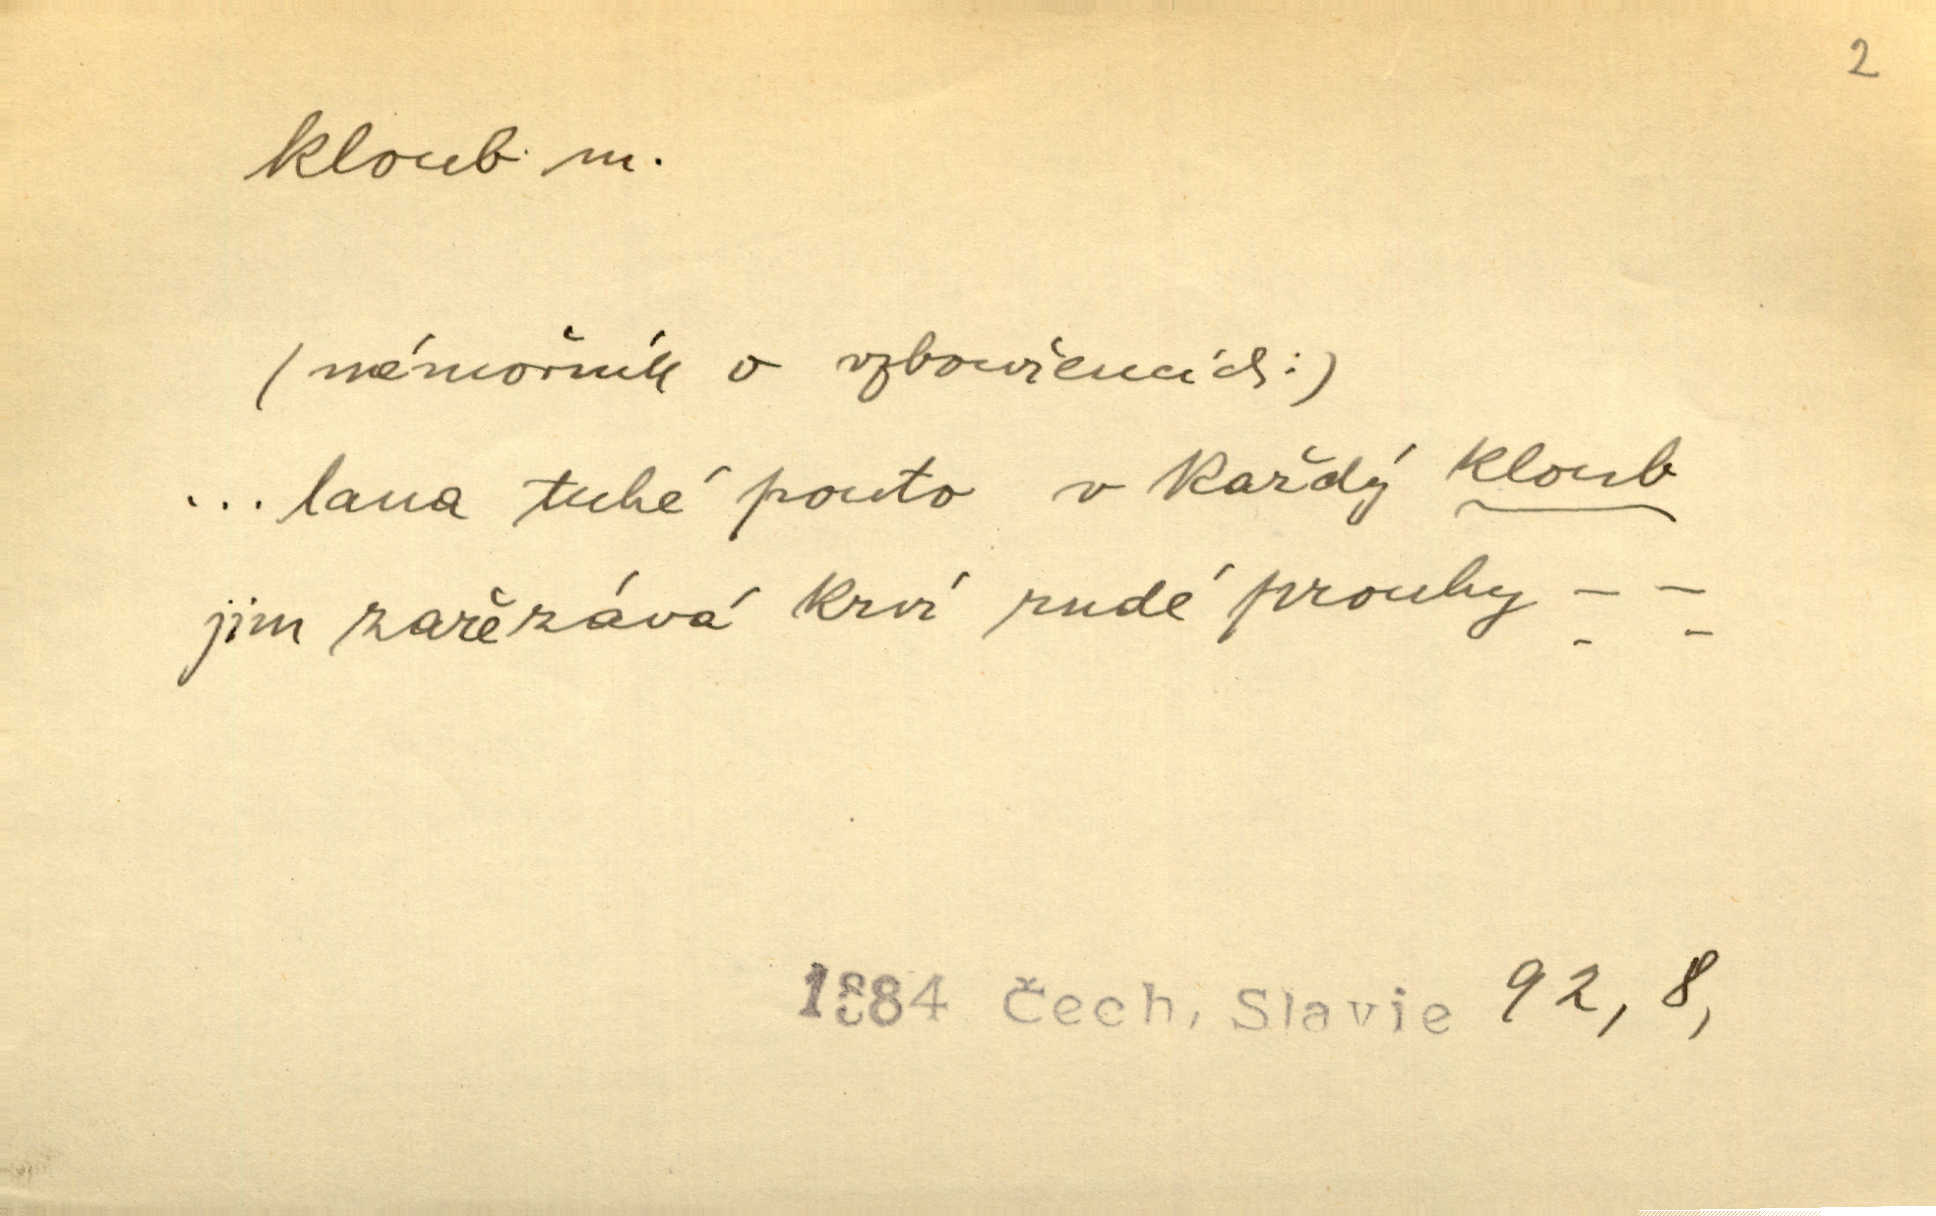 2
kloub m.
(námořník o vzbouřencích:)
...lana tuhé pouto v každý kloub
jim zařezává krví rudé prouhy - -
- -
1884 Čech, Slavie 92, 8,